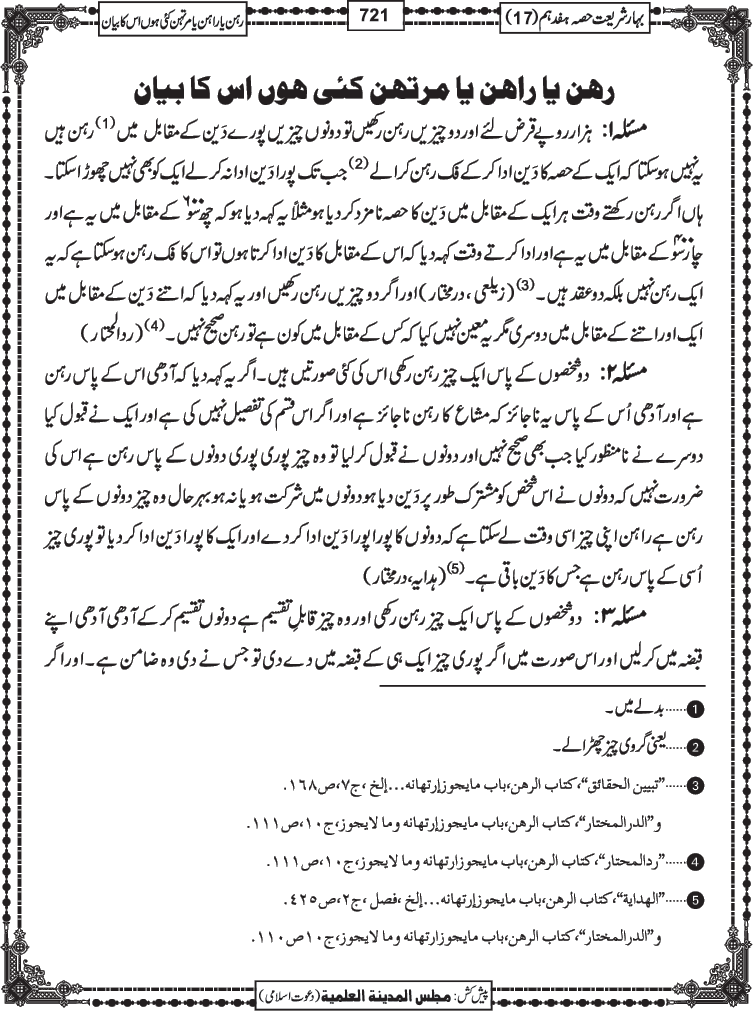 بہارِ شریعت حصہ ہفدہم (17)
721
رہن یا راہن یا مرتہن کئی ہوں اس کا بیان
رہن یا راہن یا مرتہن کئی ہوں اس کا بیان
مسئلہ ۱: ہزار روپے قرض لئے اور دو چیزیں رہن رکھیں تو دونوں چیزیں پورے دَین کے مقابل میں(1) رہن ہیں
یہ نہیں ہوسکتا کہ ایک کے حصہ کا دَین ادا کرکے فک رہن کرالے(2) جب تک پورا دَین ادا نہ کرلے ایک کو بھی نہیں چھوڑا سکتا۔
ہاں اگر رہن رکھتے وقت ہر ایک کے مقابل میں دَین کا حصہ نامزد کردیا ہو مثلاً یہ کہہ دیا ہو کہ چھ سو۶۰۰ کے مقابل میں یہ ہے اور
چار سو۴۰۰ کے مقابل میں یہ ہے اور ادا کرتے وقت کہہ دیا کہ اس کے مقابل کا دَین ادا کرتا ہوں تو اس کا فک رہن ہوسکتا ہے کہ یہ
ایک رہن نہیں بلکہ دو عقد ہیں۔(3) (زیلعی، درمختار) اور اگر دو چیزیں رہن رکھیں اور یہ کہہ دیا کہ اتنے دَین کے مقابل میں
ایک اور اتنے کے مقابل میں دوسری مگر یہ معین نہیں کیا کہ کس کے مقابل میں کون ہے تو رہن صحیح نہیں۔(4) (ردالمحتار)
مسئلہ ۲: دو شخصوں کے پاس ایک چیز رہن رکھی اس کی کئی صورتیں ہیں۔ اگر یہ کہہ دیا کہ آدھی اس کے پاس رہن
ہے اور آدھی اُس کے پاس یہ ناجائز کہ مشاع کا رہن ناجائز ہے اور اگر اس قسم کی تفصیل نہیں کی ہے اور ایک نے قبول کیا
دوسرے نے نامنظور کیا جب بھی صحیح نہیں اور دونوں نے قبول کرلیا تو وہ چیز پوری پوری دونوں کے پاس رہن ہے اس کی
ضرورت نہیں کہ دونوں نے اس شخص کو مشترک طور پر دَین دیا ہو دونوں میں شرکت ہو یا نہ ہو بہرحال وہ چیز دونوں کے پاس
رہن ہے راہن اپنی چیز اسی وقت لے سکتا ہے کہ دونوں کا پورا پورا دَین ادا کردے اور ایک کا پورا دَین ادا کردیا تو پوری چیز
اُسی کے پاس رہن ہے جس کا دَین باقی ہے۔(5) (ہدایہ، درمختار)
مسئلہ ۳: دو شخصوں کے پاس ایک چیز رہن رکھی اور وہ چیز قابلِ تقسیم ہے دونوں تقسیم کرکے آدھی آدھی اپنے
قبضہ میں کرلیں اور اس صورت میں اگر پوری چیز ایک ہی کے قبضہ میں دے دی تو جس نے دی وہ ضامن ہے۔ اور اگر
1......بدلے میں۔
2......یعنی گروی چیز چھڑالے۔
3......”تبیین الحقائق“، کتاب الرهن، باب مایجوز إرتهانه...إلخ، ج۷، ص۱۶۸.
و”الدرالمختار“، کتاب الرهن، باب مایجوز إرتهانه وما لایجوز، ج۱۰، ص۱۱۱.
4......”ردالمحتار“، کتاب الرهن، باب مایجوز ارتهانه وما لایجوز، ج۱۰، ص۱۱۱.
5......”الهدایة“، کتاب الرهن، باب مایجوز إرتهانه...إلخ، فصل، ج۲، ص۴۲۵.
و”الدرالمختار“، کتاب الرهن، باب مایجوز إرتهانه وما لایجوز، ج۱۰ ص۱۱۰.
پیش کش: مجلس المدینة العلمیة (دعوتِ اسلامی)